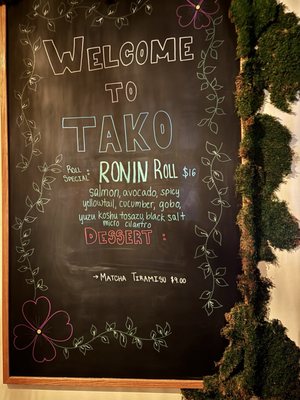 WELCOME
TO
TAKO
ROLL SPECIAL: RONIN ROLL $16
salmon, avocado, spicy
yellowtail, cucumber, gobo,
yuzu koshu tosazu, black salt
micro cilantro
DESSERT :
→ MATCHA TIRAMISU $9.00